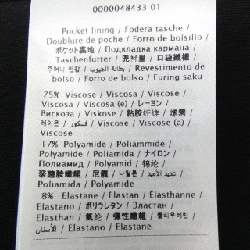 0000048433 01
Pocket lining / Fodera tasche /
Doublure de poche / Forro de bolsillo /
ポケット裏地 / Подкладка кармана /
Taschenfutter / 兜衬里 / 口袋織櫬 /
주머니 안감 / بطانة الجيوب / Revestimento de
bolso / Forro de bolso / Furing saku
75% Viscose / Viscosa / Viscose /
Viscosa / Viscosa (o) / レーヨン /
Вискоза / Viskose / 黏胶纤维 / 嫘縈 /
레이온 / فسكوز / Viscose / Viscosa (o) /
Viscose
17% Polyamide / Poliammide /
Polyamide / Poliamida / ナイロン /
Полиамид / Polyamid / 锦纶 /
聚醯胺纖維 / 尼龍 / 나일론 / بولي أميد /
Poliamida / Polyamide
8% Elastane / Elastan / Elasthanne /
Elastano / ポリウレタン / Эластан /
Elasthan / 氨纶 / 彈性纖維 / 폴리우레탄 /
الاستان / Elastano / Elastane